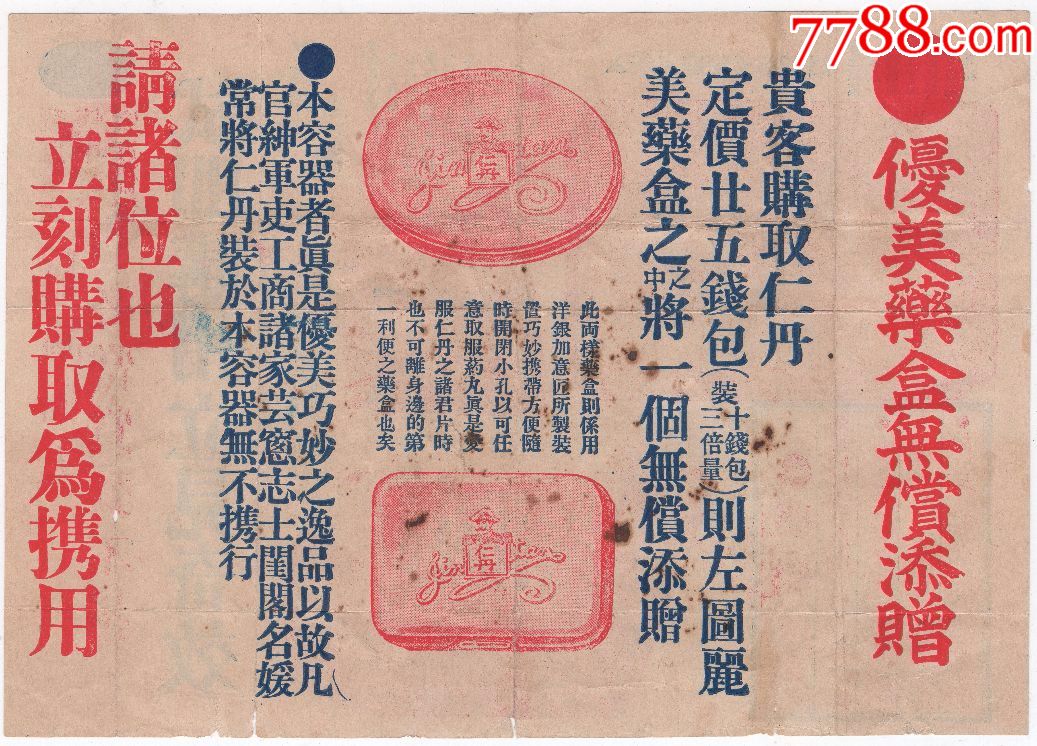 7788.com
●優美藥盒無償添贈
貴客購取仁丹
定價廿五錢包(裝十錢包三倍量)則左圖麗
美藥盒之之中將一個無償添贈
Jintan
仁丹
此両樣藥盒則係用
洋銀加意匠所製裝
置巧妙携帶方便隨
時開閉小孔以可任
意取服葯丸眞是愛
服仁丹之諸君片時
也不可離身邊的第
一利便之藥盒也矣
Jintan
仁丹
●本容器者眞是優美巧妙之逸品以故凡
官紳軍吏工商諸家芸窓志士閨閣名媛
常將仁丹裝於本容器無不携行
請諸位也
立刻購取爲携用